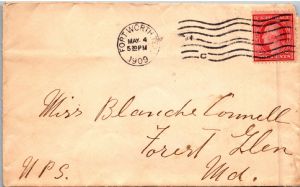 FORT WORTH
MAY 4
5:30 PM
1909
C
Miss Blanche Connell
Forest Glen
Md.
U.P.S.